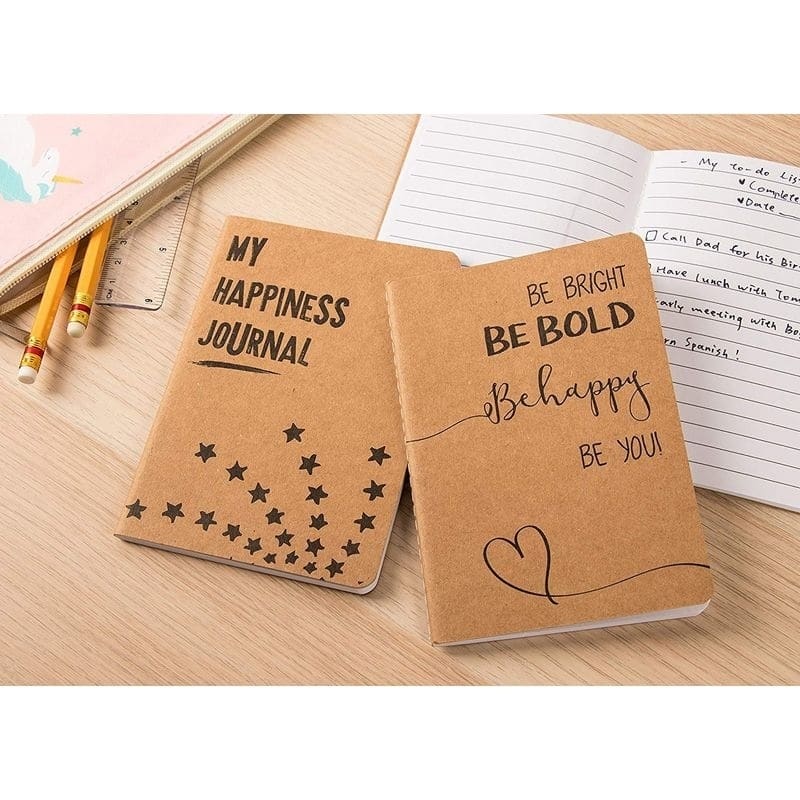 MY
HAPPINESS
JOURNAL
BE BRIGHT
BE BOLD
Be happy
BE YOU!
- My to-do
Complete
Date
Call Dad for his
Have lunch with
meeting with
Spanish!
5
6